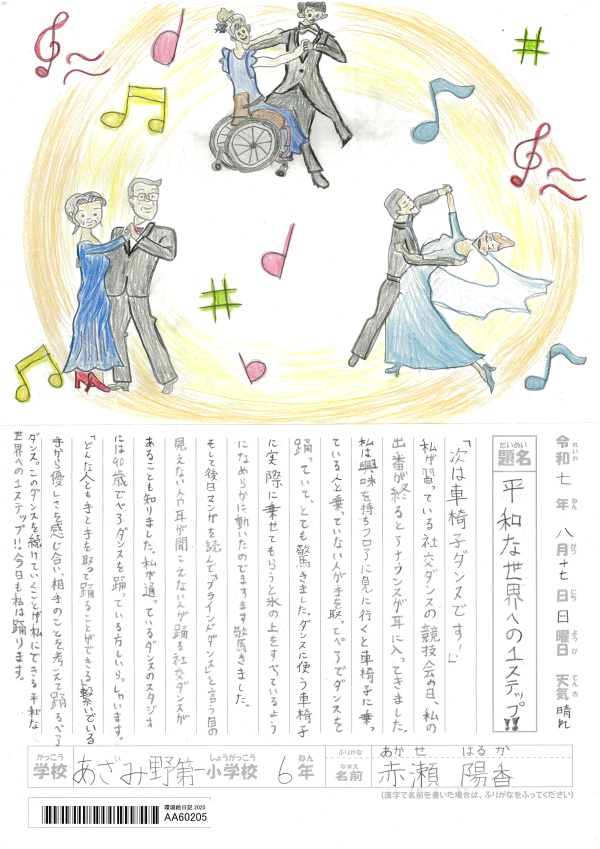 令和七年八月十七日日曜日 天気 晴れ
れいわ ねん がつ にち ようび てんき
だいめい
題名 平和な世界への1ステップ!!
「次は車椅子ダンスです！」
私が習っている社交ダンスの競技会の日、私の
出番が終るとアナウンスが耳に入ってきました。
私は興味を持ちフロアに見に行くと車椅子に乗っ
ている人と乗っていない人が手を取ってペアでダンスを
踊っていて、とても驚きました。ダンスに使う車椅子
に実際に乗せてもらうと氷の上をすべているよう
になめらかに動いたのでますます驚きました。
そして後日マンガを読んで「ブラインドダンス」と言う目の
見えない人や耳が聞こえない人が踊る社交ダンスが
あることも知りました。私が通っているダンスのスタジオ
には90歳でペアダンスを踊っている方もいらっしゃいます。
「どんな人とも手と手を取って踊ることができる」繋いでいる
手から優しさを感じ合い相手のことを考えて踊るペア
ダンス。このダンスを続けていくことが私にできる平和な
世界への1ステップ!!今日も私は踊ります。
がっこう しょうがっこう ねん ふりがな あかせ はるか
学校 あざみ野第一小学校 6年 なまえ 名前 赤瀬 陽香
(漢字で名前を書いた場合は、ふりがなをふってください)
環境絵日記 2025
AA60205